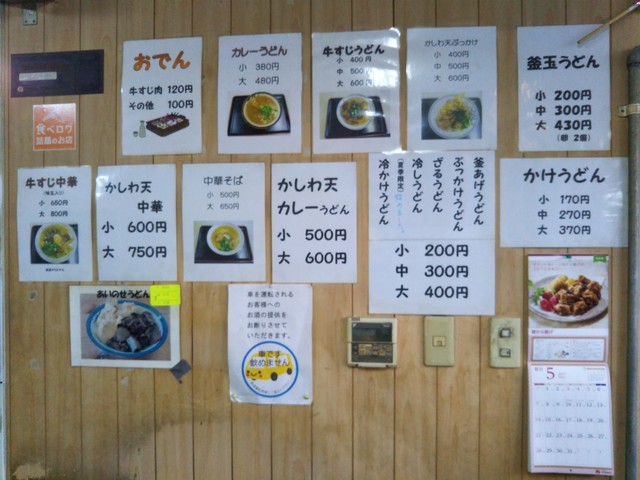 おでん
牛すじ肉 120円
その他 100円
カレーうどん
小 380円
大 480円
牛すじうどん
小 400円
中 500円
大 600円
かしわ天ぶっかけ
小 400円
中 500円
大 600円
釜玉うどん
小 200円
中 300円
大 430円
(卵 2個)
食べログ
話題のお店
牛すじ中華
小 650円
大 800円
かしわ天
中華
小 600円
大 750円
中華そば
小 500円
大 650円
かしわ天
カレーうどん
小 500円
大 600円
釜あげうどん
ぶっかけうどん
ざるうどん
冷しうどん
(夏季限定)
冷かけうどん
小 200円
中 300円
大 400円
かけうどん
小 170円
中 270円
大 370円
あいのせうどん
車を運転される
お客様への
お酒の提供を
お断りさせて
いただきます。
車です
飲めません
5